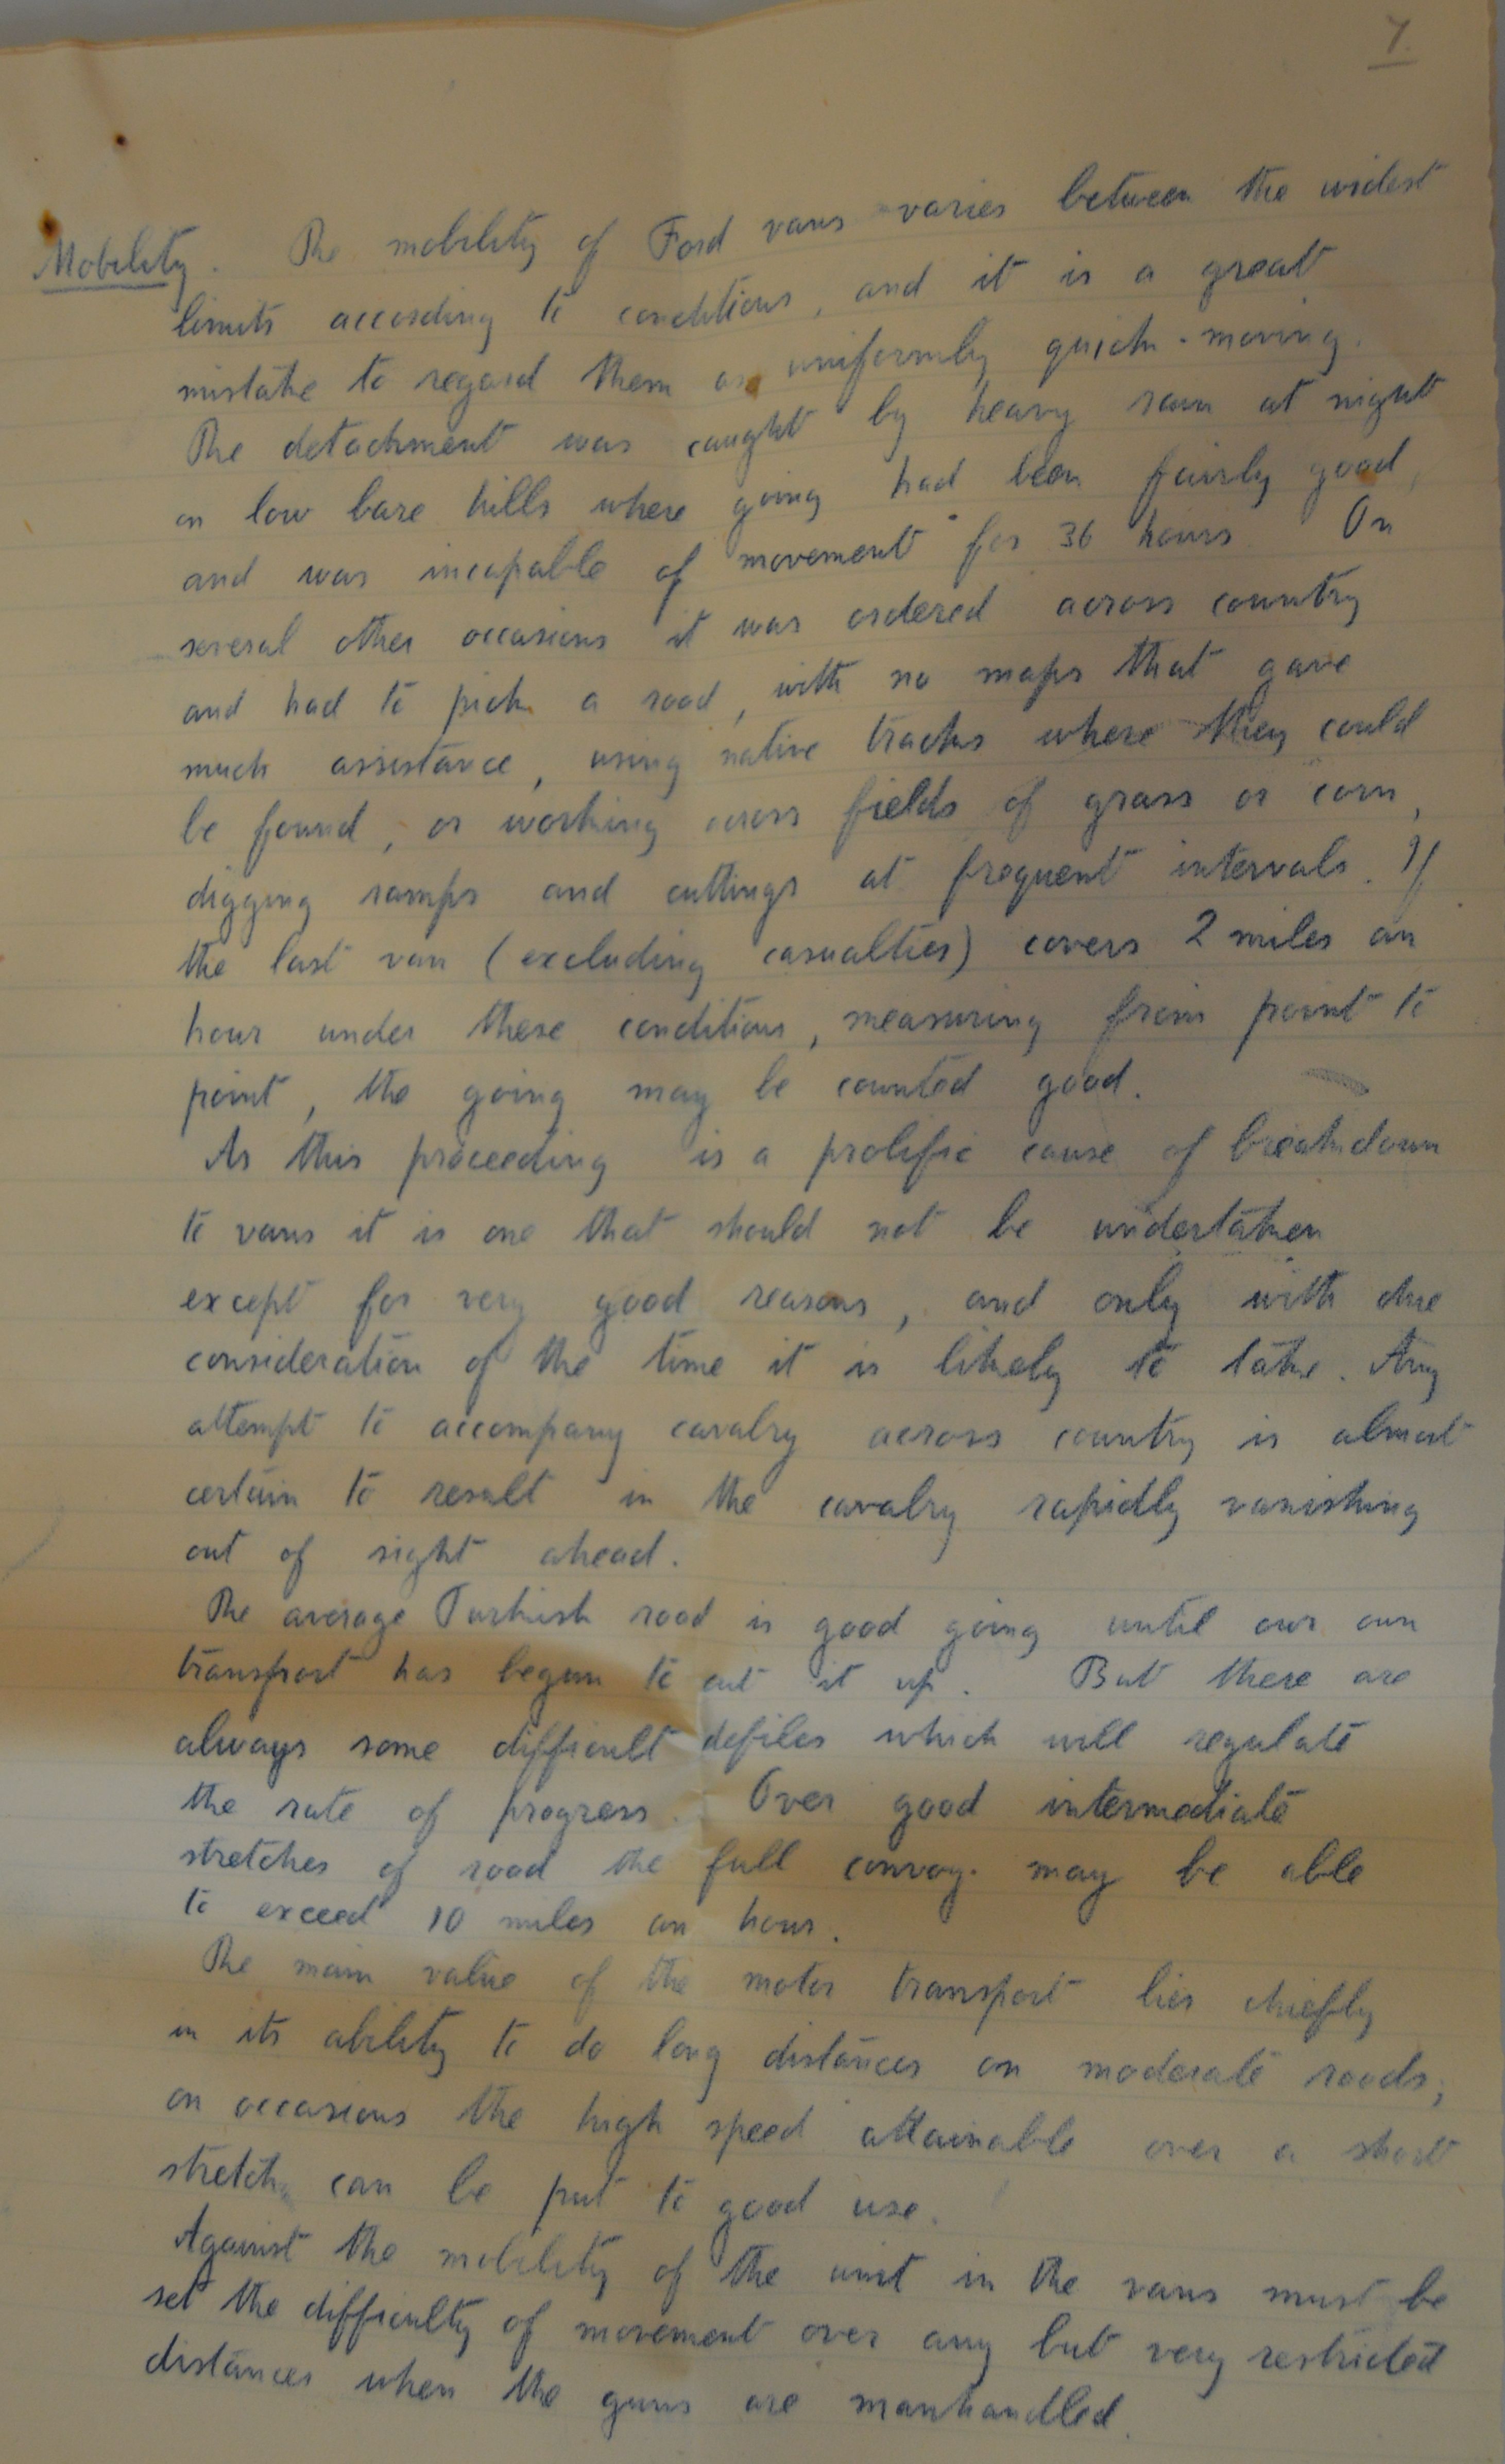 7.
Mobility. The mobility of Ford vans varies between the widest
limits according to conditions, and it is a great
mistake to regard them as uniformly quick-moving.
The detachment was caught by heavy rain at night
on low bare hills where going had been fairly good,
and was incapable of movement for 36 hours. On
several other occasions it was ordered across country
and had to pick a road, with no maps that gave
much assistance, using native tracks where they could
be found, or working across fields of grass or corn,
digging ramps and cuttings at frequent intervals. If
the last van (excluding casualties) covers 2 miles an
hour under these conditions, measuring from point to
point, the going may be counted good.
As this proceeding is a prolific cause of breakdown
to vans it is one that should not be undertaken
except for very good reasons, and only with due
consideration of the time it is likely to take. Any
attempt to accompany cavalry across country is almost
certain to result in the cavalry rapidly vanishing
out of sight ahead.
The average Turkish road is good going until our own
transport has begun to cut it up. But there are
always some difficult defiles which will regulate
the rate of progress. Over good intermediate
stretches of road the full convoy may be able
to exceed 10 miles an hour.
The main value of the motor transport lies chiefly
in its ability to do long distances on moderate roads;
on occasions the high speed attainable over a short
stretch can be put to good use.
Against the mobility of the unit in the vans must be
set the difficulty of movement over any but very restricted
distances when the guns are manhandled.